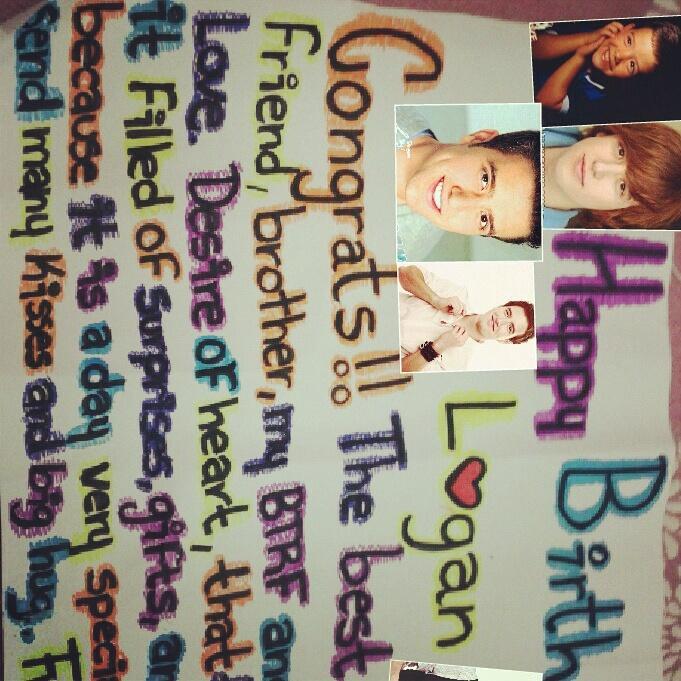 Happy Birth
Logan
Congrats!! The best
Friend, brother, my BTRF an
Love. Desire of heart, that
it filled of surprises, gifts, an
because it is a day very speci
Send many kisses and big hug.